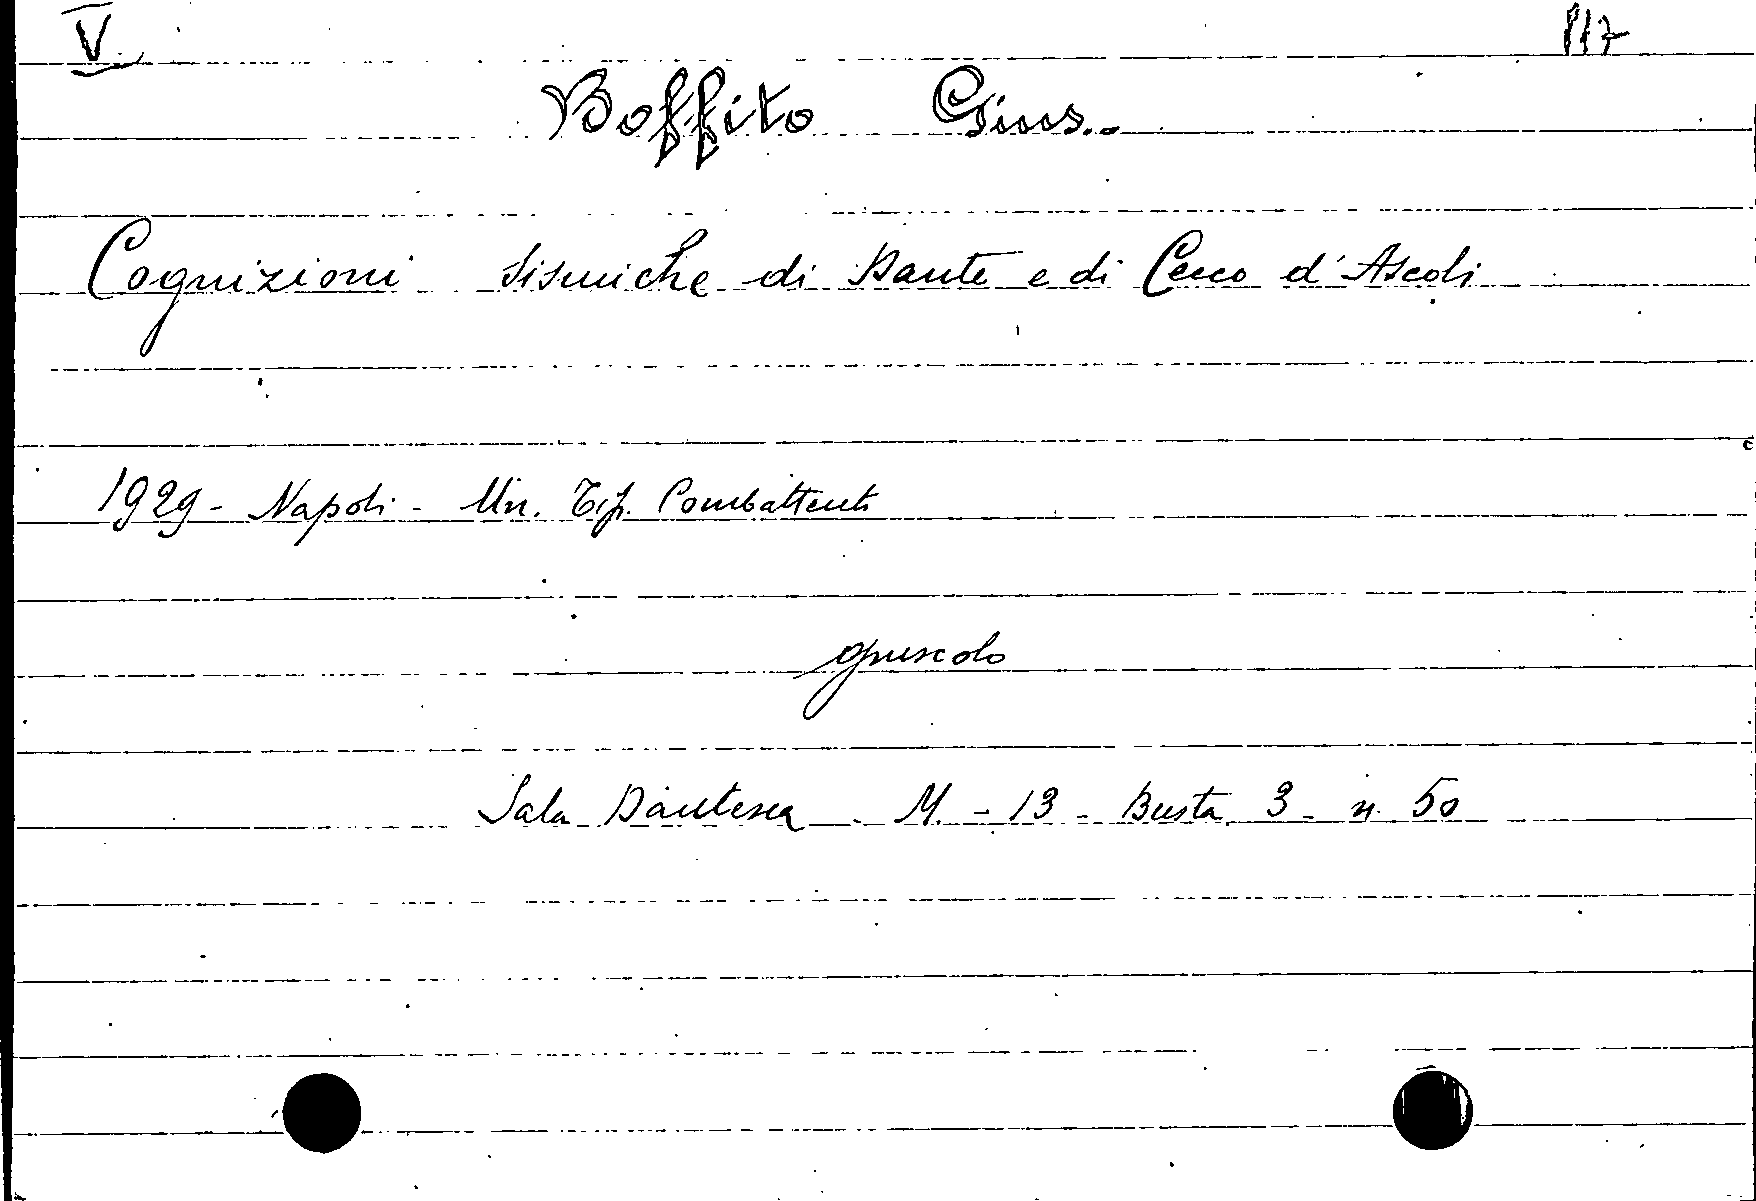 V. 117
Boffito Gius..
Cognizioni sismiche di Dante e di Cecco d'Ascoli
1929 - Napoli - Un. Tip. Combattenti
opuscolo
Sala Dantesca - M. - 13 - Busta 3 - n. 50